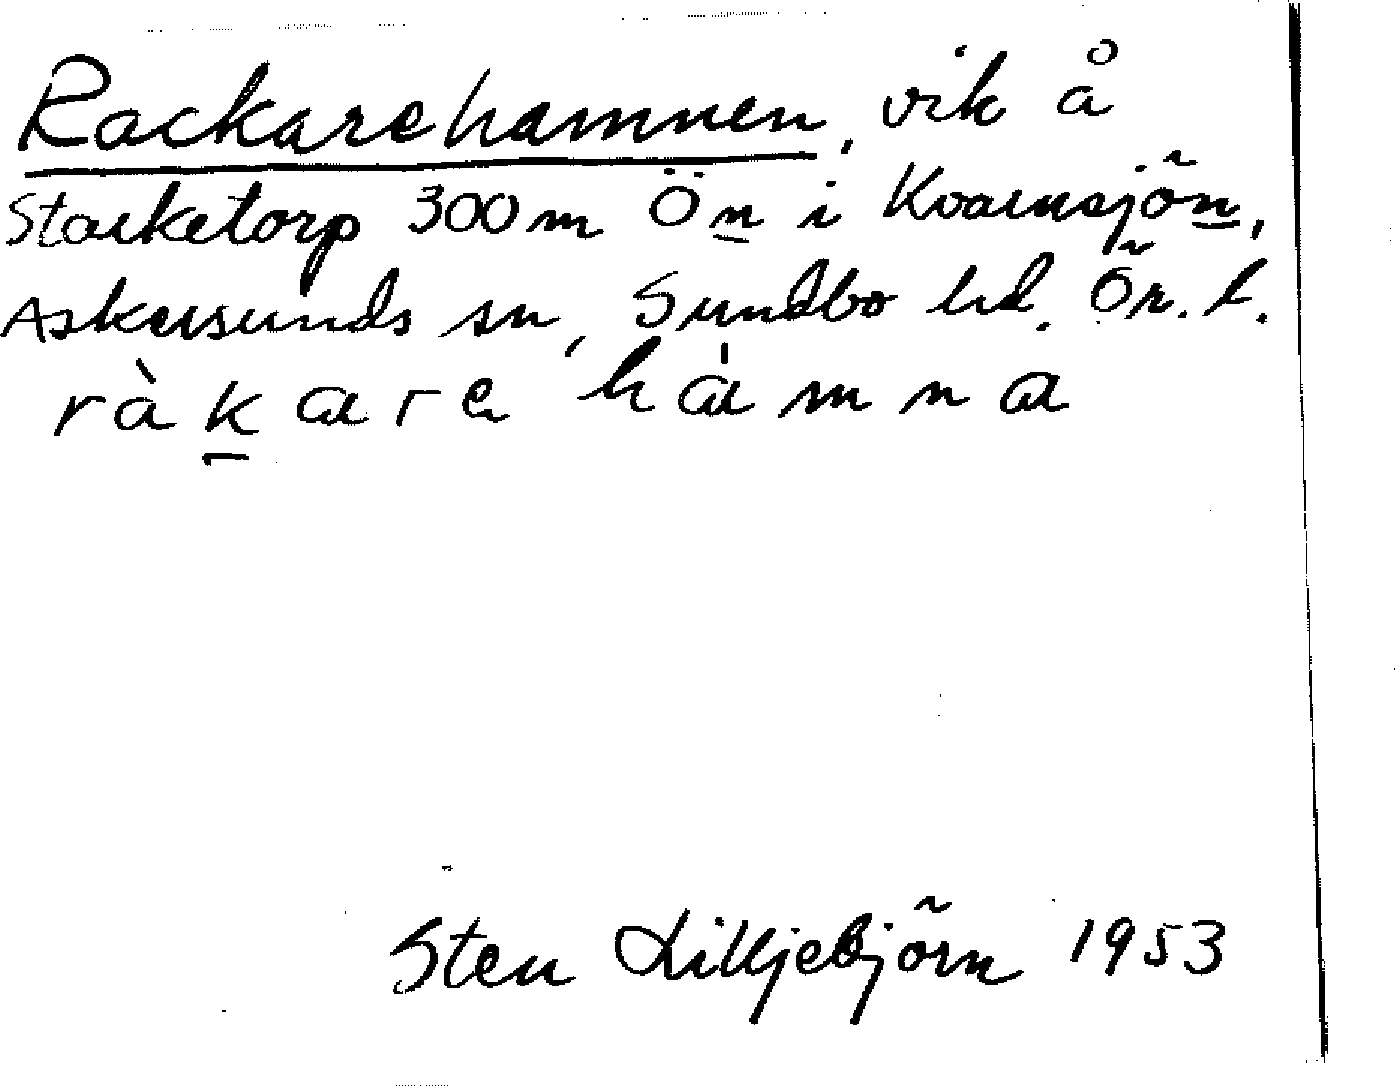 Rackarehamnen, vik å
Starketorp 300 m Ön i Kvarnsjön,
Askersunds sn, Sundbo hd. Ör. l.
ràkare hàmna
Sten Lilljebjörn 1953